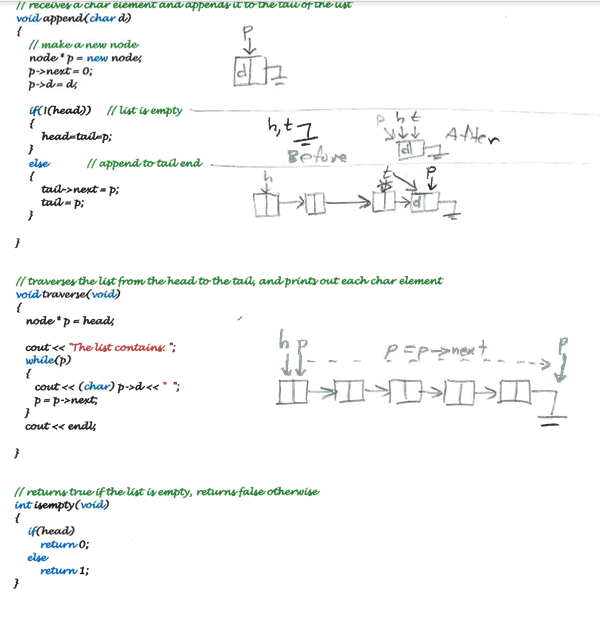 // receives a char element and appends it to the tail of the list
void append(char d)
{
// make a new node
node * p = new node;
p->next = 0;
p->d = d;
p
d
if( !(head)) // list is empty
{
head=tail=p;
}
h, t
Before
p h t
d
After
else // append to tail end
{
tail->next = p;
tail = p;
}
h
t
p
d
}
// traverses the list from the head to the tail, and prints out each char element
void traverse(void)
{
node * p = head;
cout << "The list contains: ";
while(p)
{
cout << (char) p->d << " ";
p = p->next;
}
cout << endl;
h p
p = p->next
p
}
// returns true if the list is empty, returns false otherwise
int isempty(void)
{
if(head)
return 0;
else
return 1;
}